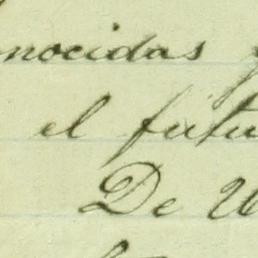 nocidas
el futu
De U